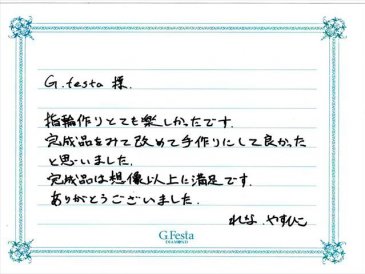 G.festa 様.
指輪作りとても楽しかったです.
完成品をみて改めて手作りにして良かった
と思いました.
完成品は想像以上に満足です.
ありがとうございました.
れな.やすひこ
G.Festa
DIAMOND